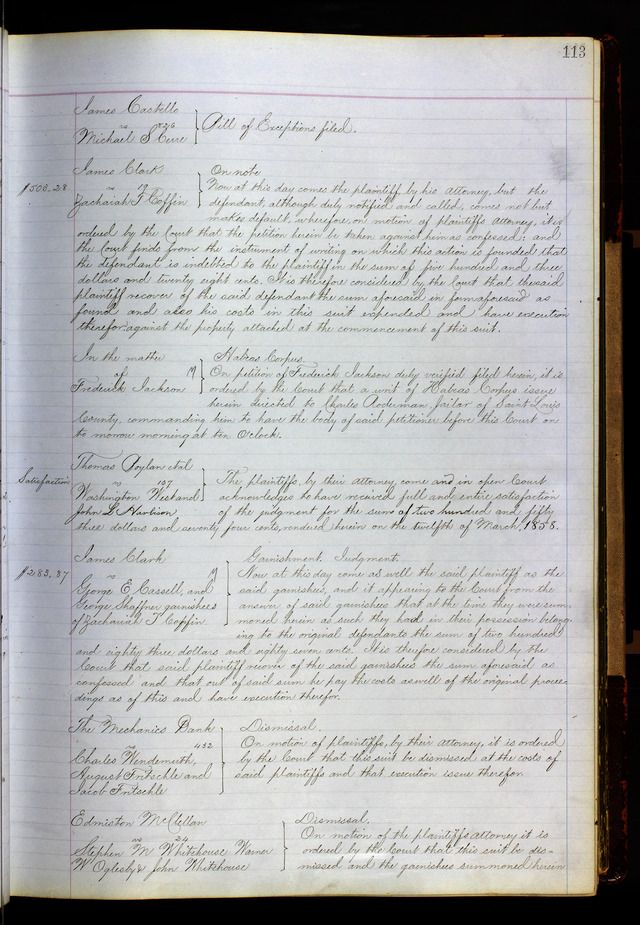 113
James Castello
vs 226
Michael S Cerre } Bill of Exceptions filed.
James Clark } On note
$503.28 vs Now at this day comes the plaintiff by his Attorney, but the
Zachariah F Coffin defendant, although duly notified and called, comes not but
makes default, wherefore, on motion of plaintiffs attorney, it is
ordered by the Court that the petition herein be taken against him as confessed; and
the Court finds from the instrument of writing on which this action is founded that
the defendant is indebted to the plaintiff in the sum of five hundred and three
dollars and twenty eight cents. It is therefore considered by the Court that the said
plaintiff recover of the said defendant the sum aforesaid in form aforesaid as
found and also his costs in this suit expended and have execution
therefor against the property attached at the commencement of this suit.
In the matter } Habeas Corpus.
of M On petition of Frederick Jackson duly verified filed herein, it is
Frederick Jackson ordered by the Court that a writ of Habeas Corpus issue
herein directed to Charles Roderman, Jailor of Saint Louis
County, commanding him to have the body of said petitioner before this Court on
to morrow morning at ten O'clock.
Thomas Poylan et al
Satisfaction vs 137 } The plaintiffs, by their attorney, come and in open Court
Washington Weskand acknowledges to have received full and entire satisfaction
John L Harbison of the judgment for the sum of two hundred and fifty
three dollars and seventy four cents, rendered herein on the twelfth of March, 1858.
James Clark Garnishment. Judgment.
$283.87 vs M } Now at this day come as well the said plaintiff as the
George E Cassell, and said garnishees, and it appearing to the Court from the
George Shaffner garnishees answer of said garnishees that at the time they were sum-
of Zachariah F Coffin moned herein as such they had in their possession belong-
ing to the original defendants the sum of two hundred
and eighty three dollars and eighty seven cents. It is therefore considered by the
Court that said plaintiff recover of the said garnishees the sum aforesaid as
confessed and that out of said sum he pay the costs as well of the original procee-
dings as of this and have execution therefor.
The Mechanics Bank } Dismissal.
vs 432 On motion of plaintiffs, by their attorney, it is ordered
Charles Wendemuth, by the Court that this suit be dismissed at the costs of
August Fritschle and said plaintiffs and that execution issue therefor
Jacob Fritschle
Edmiston McClellan } Dismissal.
vs 24 On motion of the plaintiffs attorney it is
Stephen M Whitehouse Warner ordered by the Court that this suit be dis-
W Oglesby & John Whitehouse missed and the garnishees summoned herein